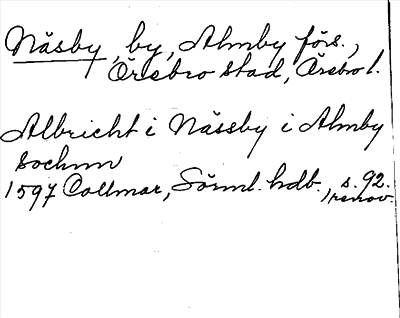 Näsby, by, Almby förs.,
Örebro stad, Örebro l.
Albricht i Nässby i Almby
sochnn
1597 Collmar, Sörml. hdb., s. 92.
renov.